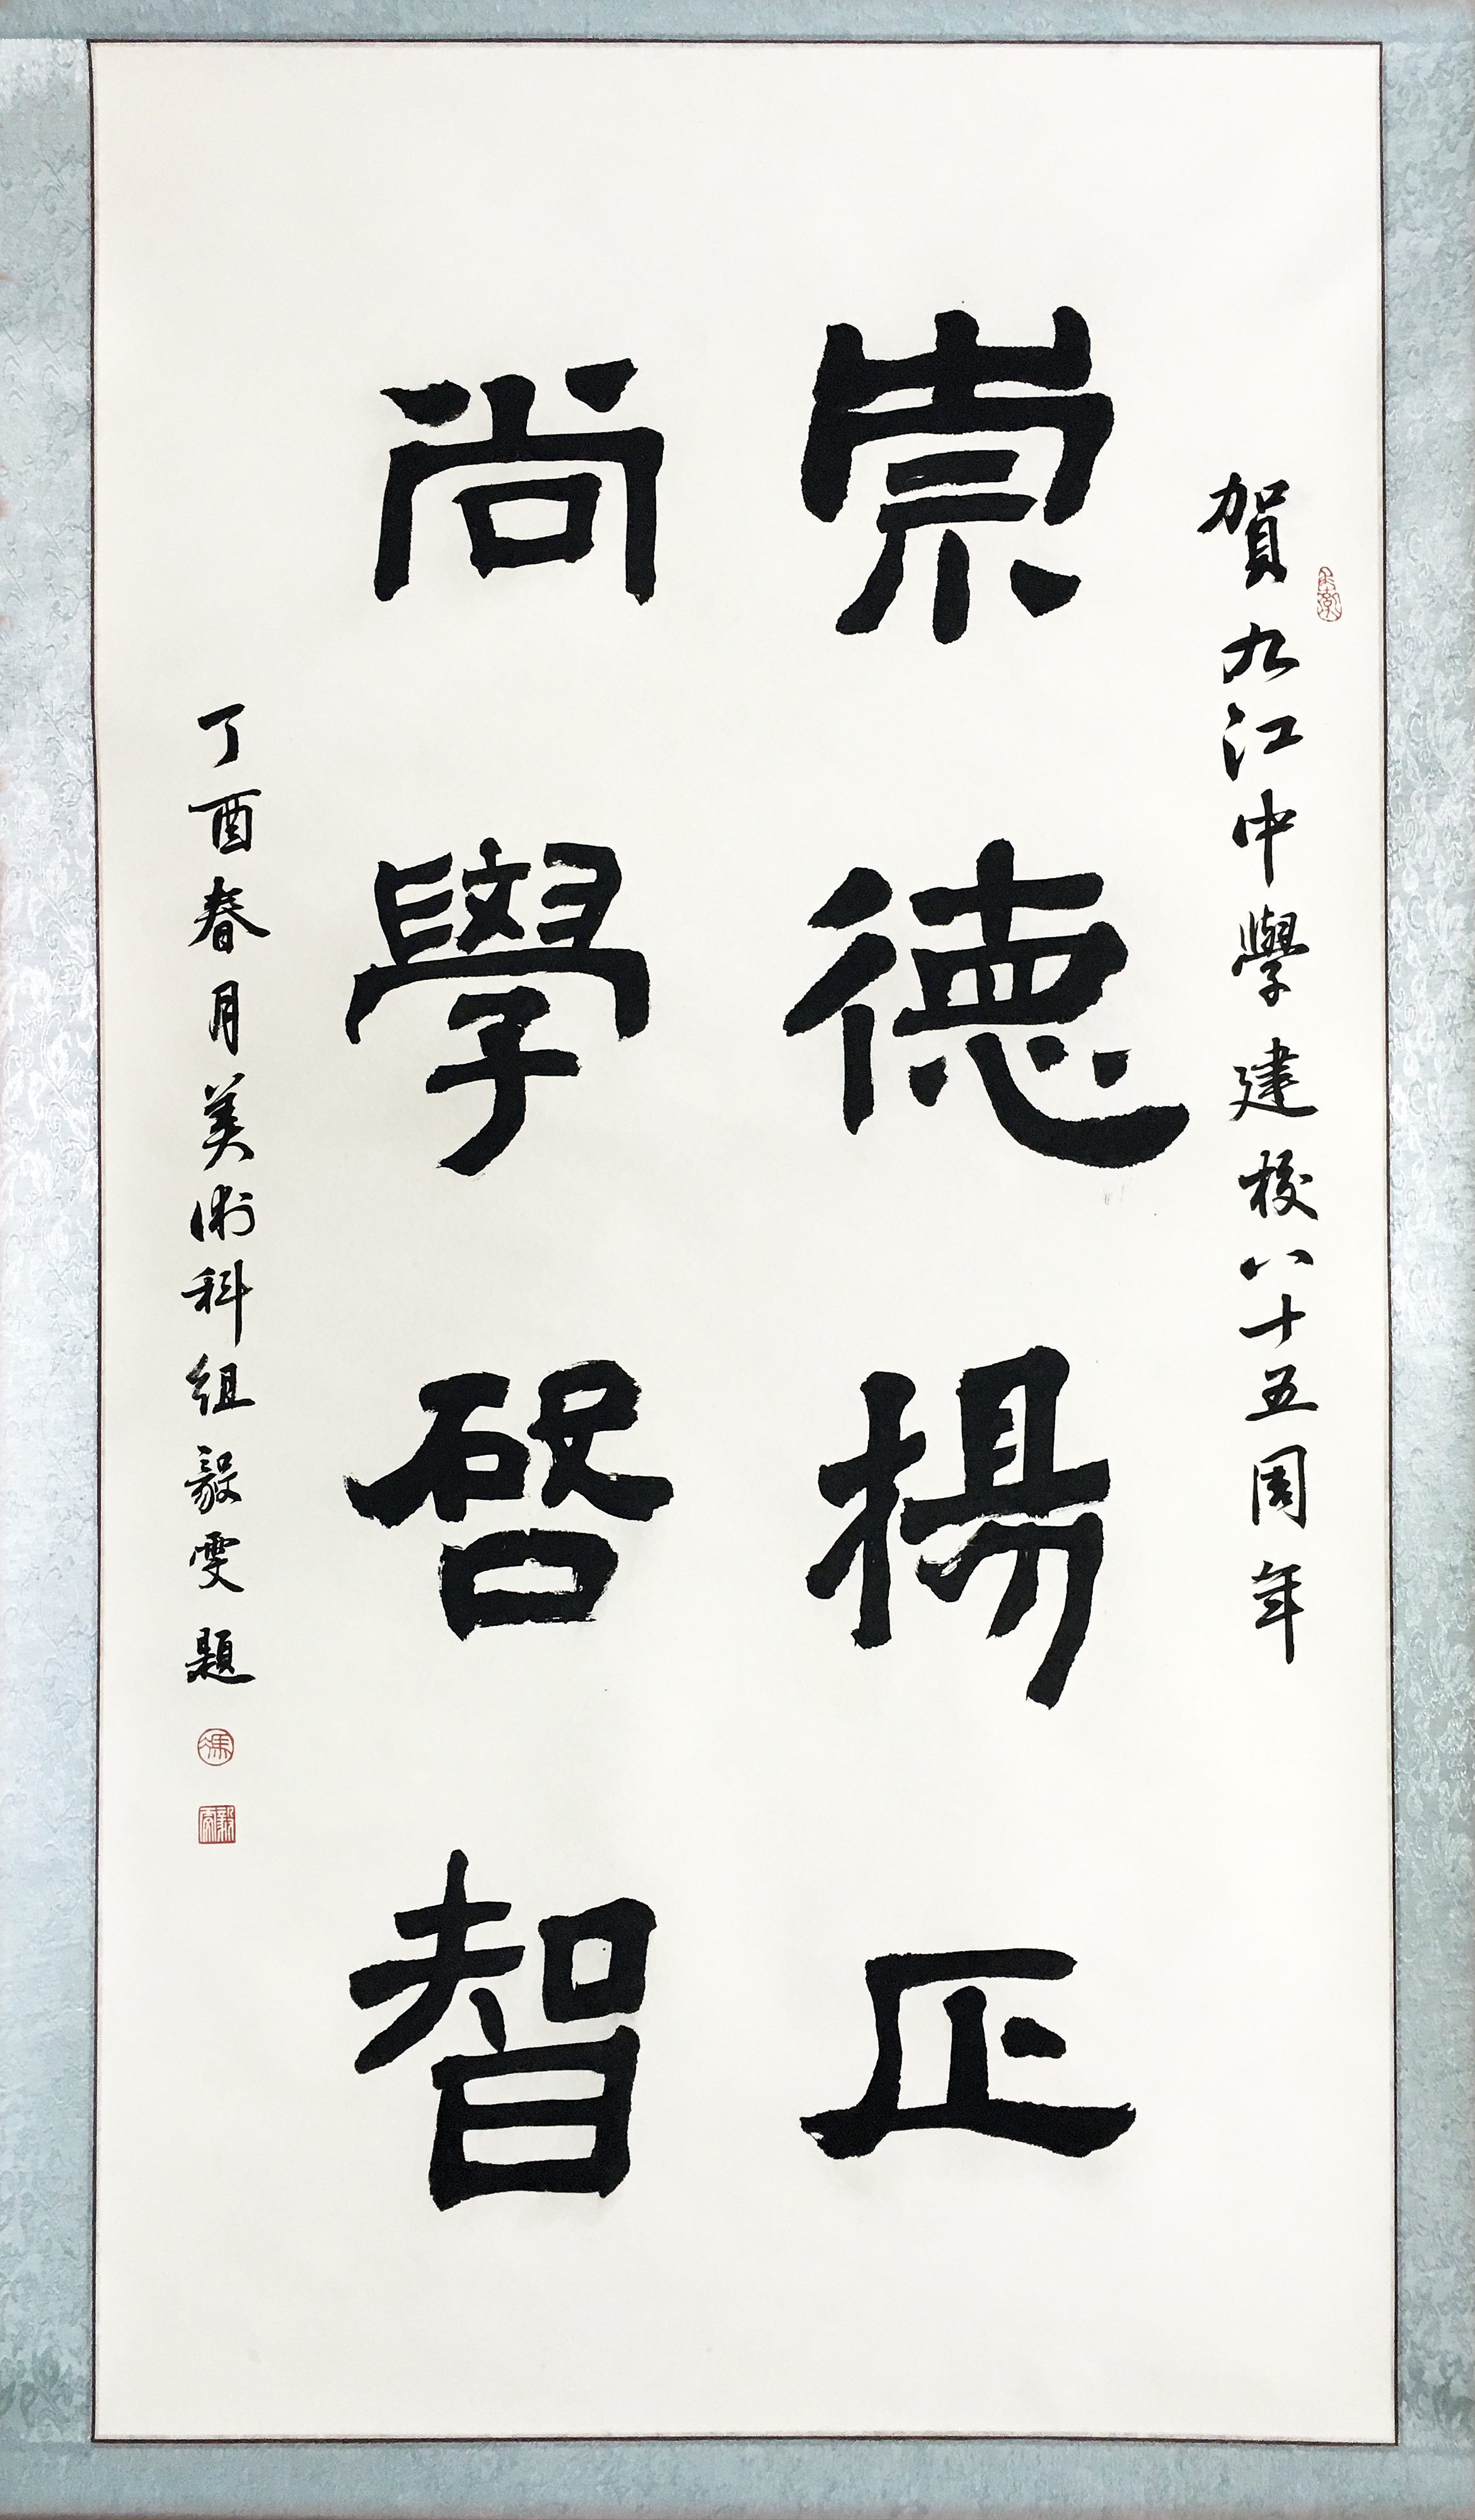 賀九江中學建校八十五周年
崇德揚正
尚學啓智
丁酉春月美術科組毅雯題
馮
毅雯